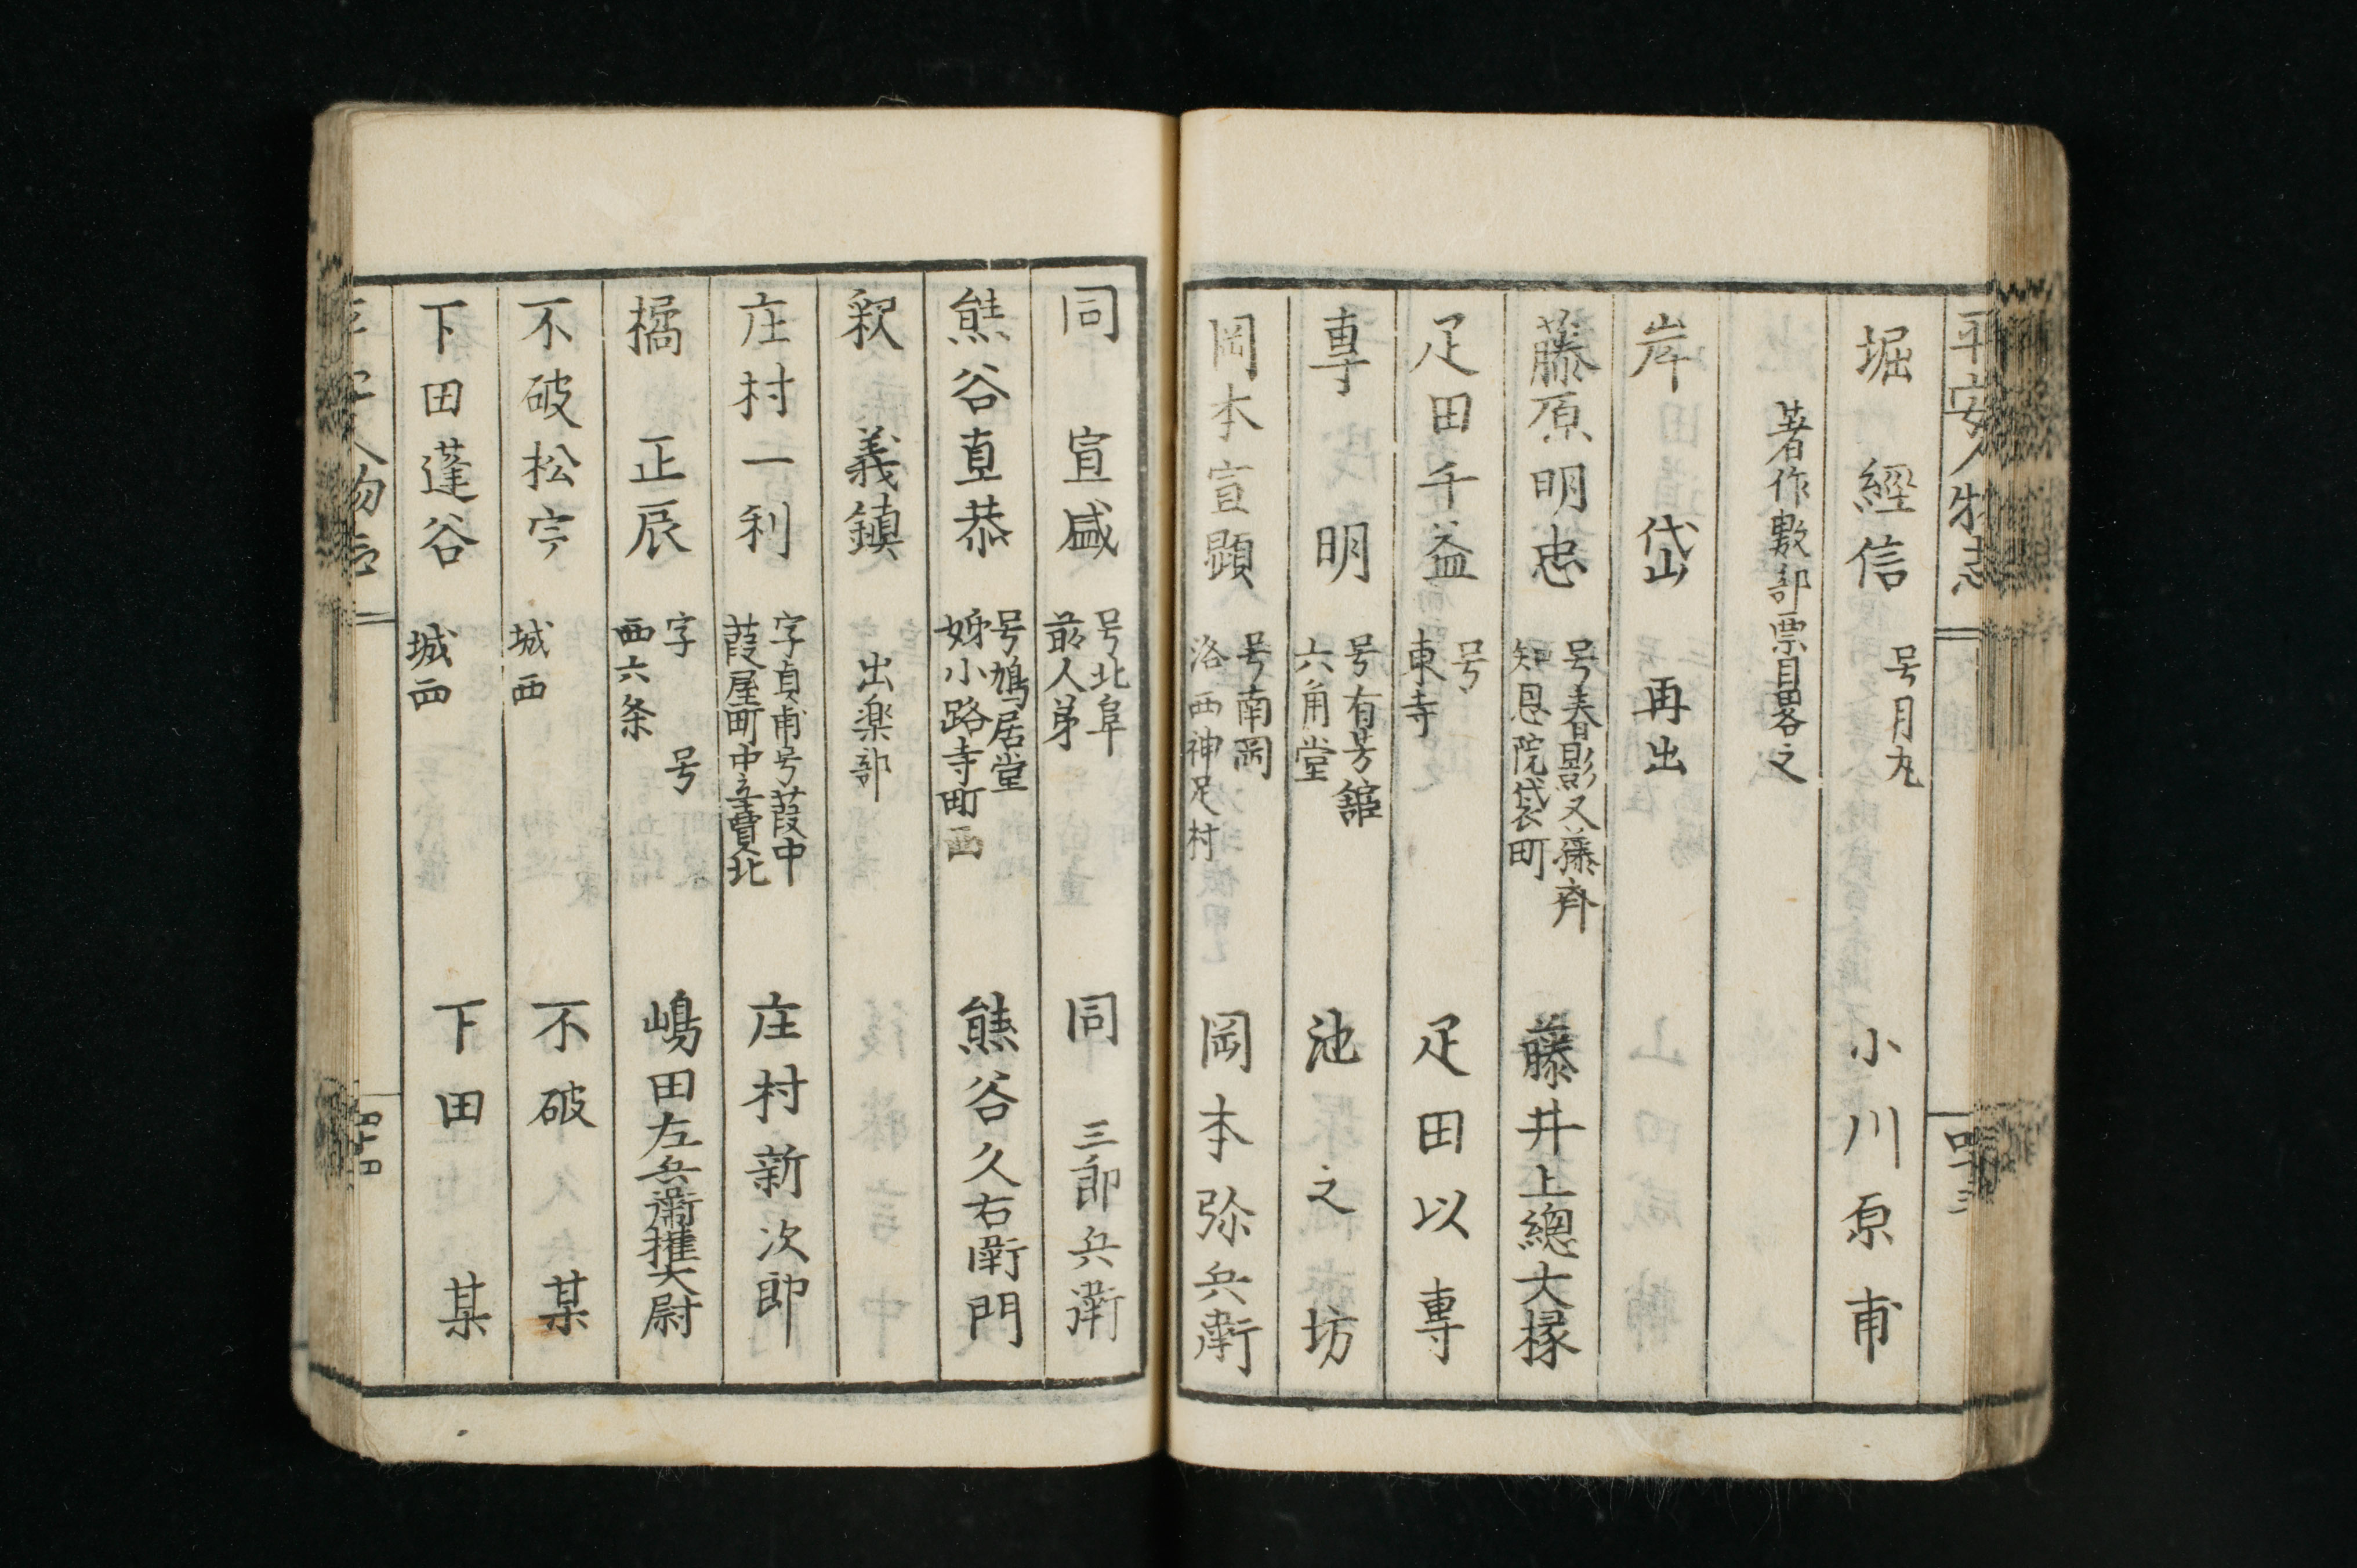 平安人物志
堀 經信 号月丸 小川原甫
著作數部票目畧之
岸 岱 再出
藤原明忠 号春影又藤齊 知恩院袋町 藤井上總大掾
疋田千益 号 東寺 疋田以專
專 明 号有芳舘 六角堂 池之坊
岡本宣顕 号南岡 洛西神足村 岡本弥兵衛
同 宣盛 号北阜 前人弟 同 三郎兵衛
熊谷直恭 号鳩居堂 姊小路寺町西 熊谷久右衛門
釈 義鎮 出楽部
庄村一利 字貞甫号葭中 葭屋町中立賣北 庄村新次郎
橘 正辰 字 号 西六条 嶋田左兵衛權大尉
不破松宇 城西 不破某
下田蓬谷 城西 下田某